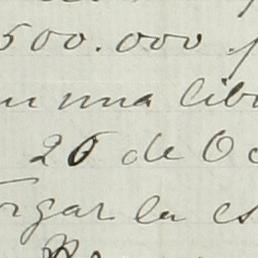 500.000
en una lib
26 de Oc
orgar la es